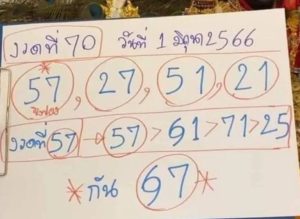 งวดที่ 70 วันที่ 1 มิถุน 2566
*
57, 27, 51, 21
งวดที่ 57 - 57 > 61 > 71 > 25
* กัน 67 *